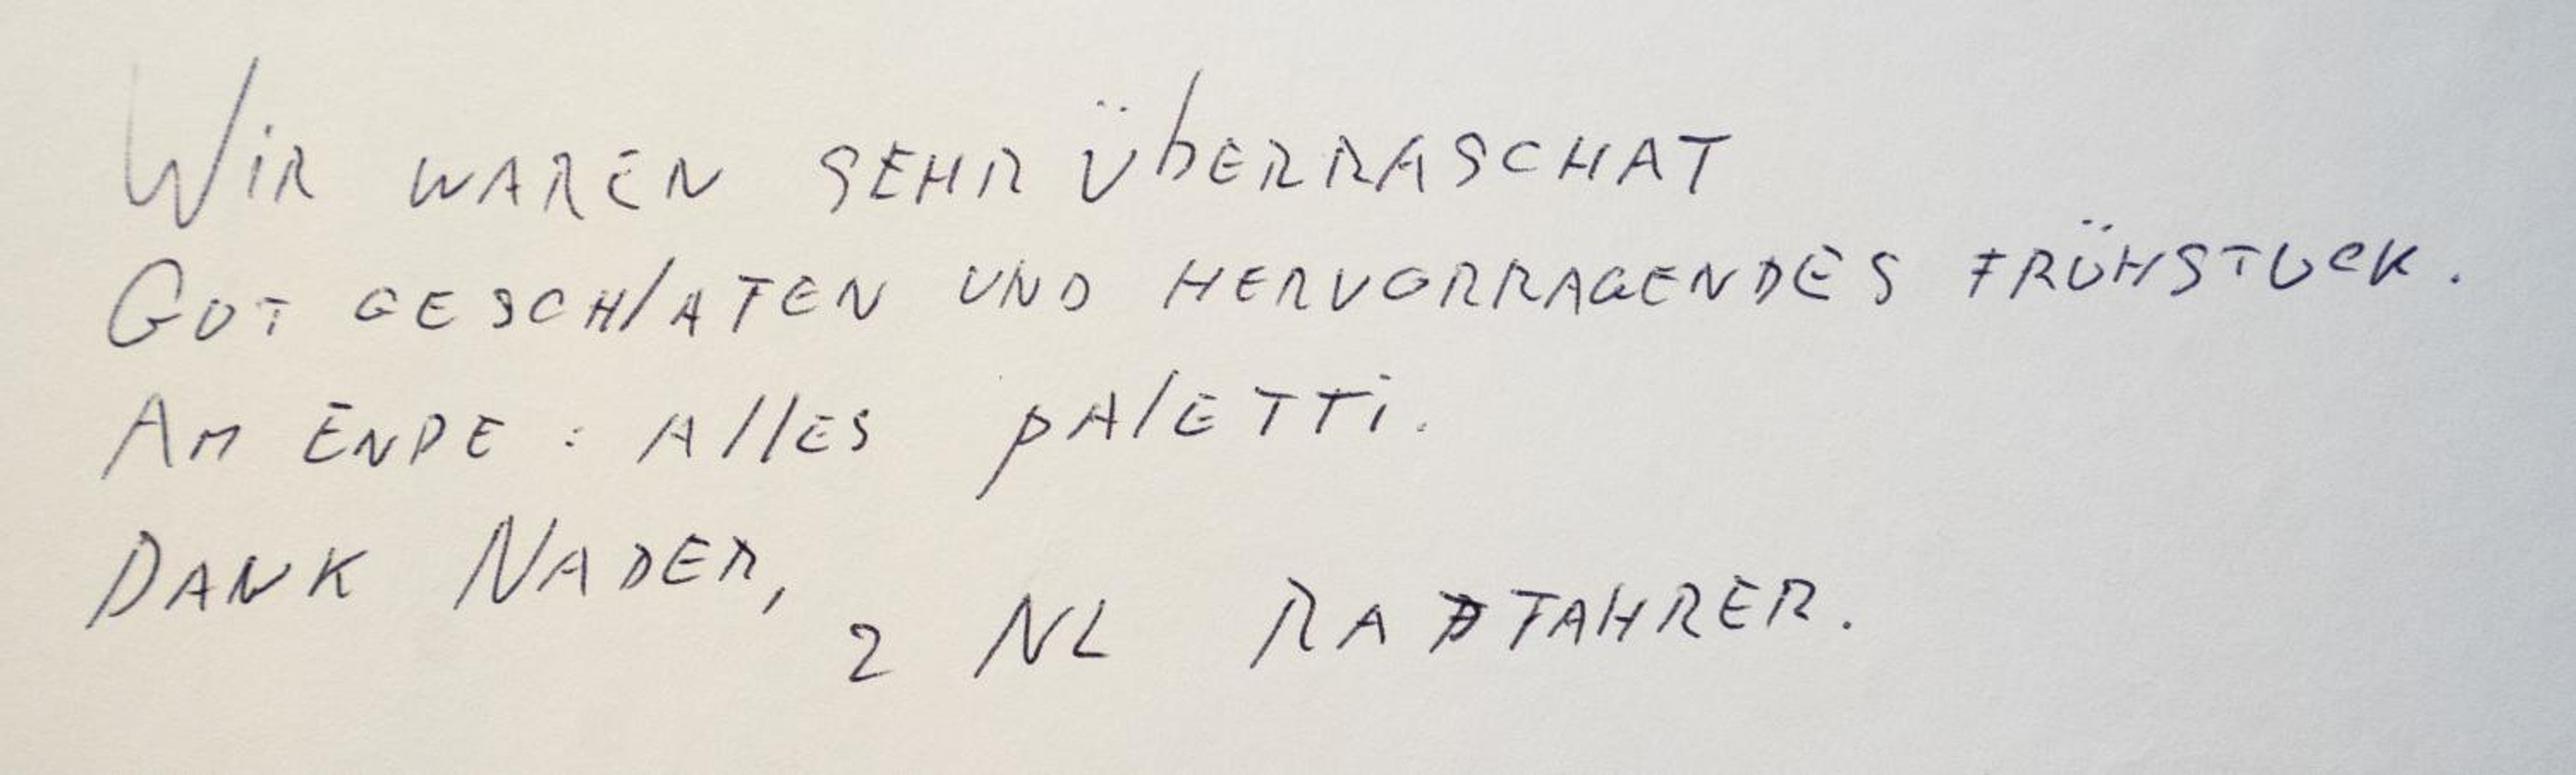 WiR WAREN SEHR ÜbERRASCHAT
GUT GESCHlAFEN UND HERVORRAGENDES FRÜHSTUCK.
AM ENDE : AllES pAlETTi.
DANK NADER,
2 NL RADFAHRER.